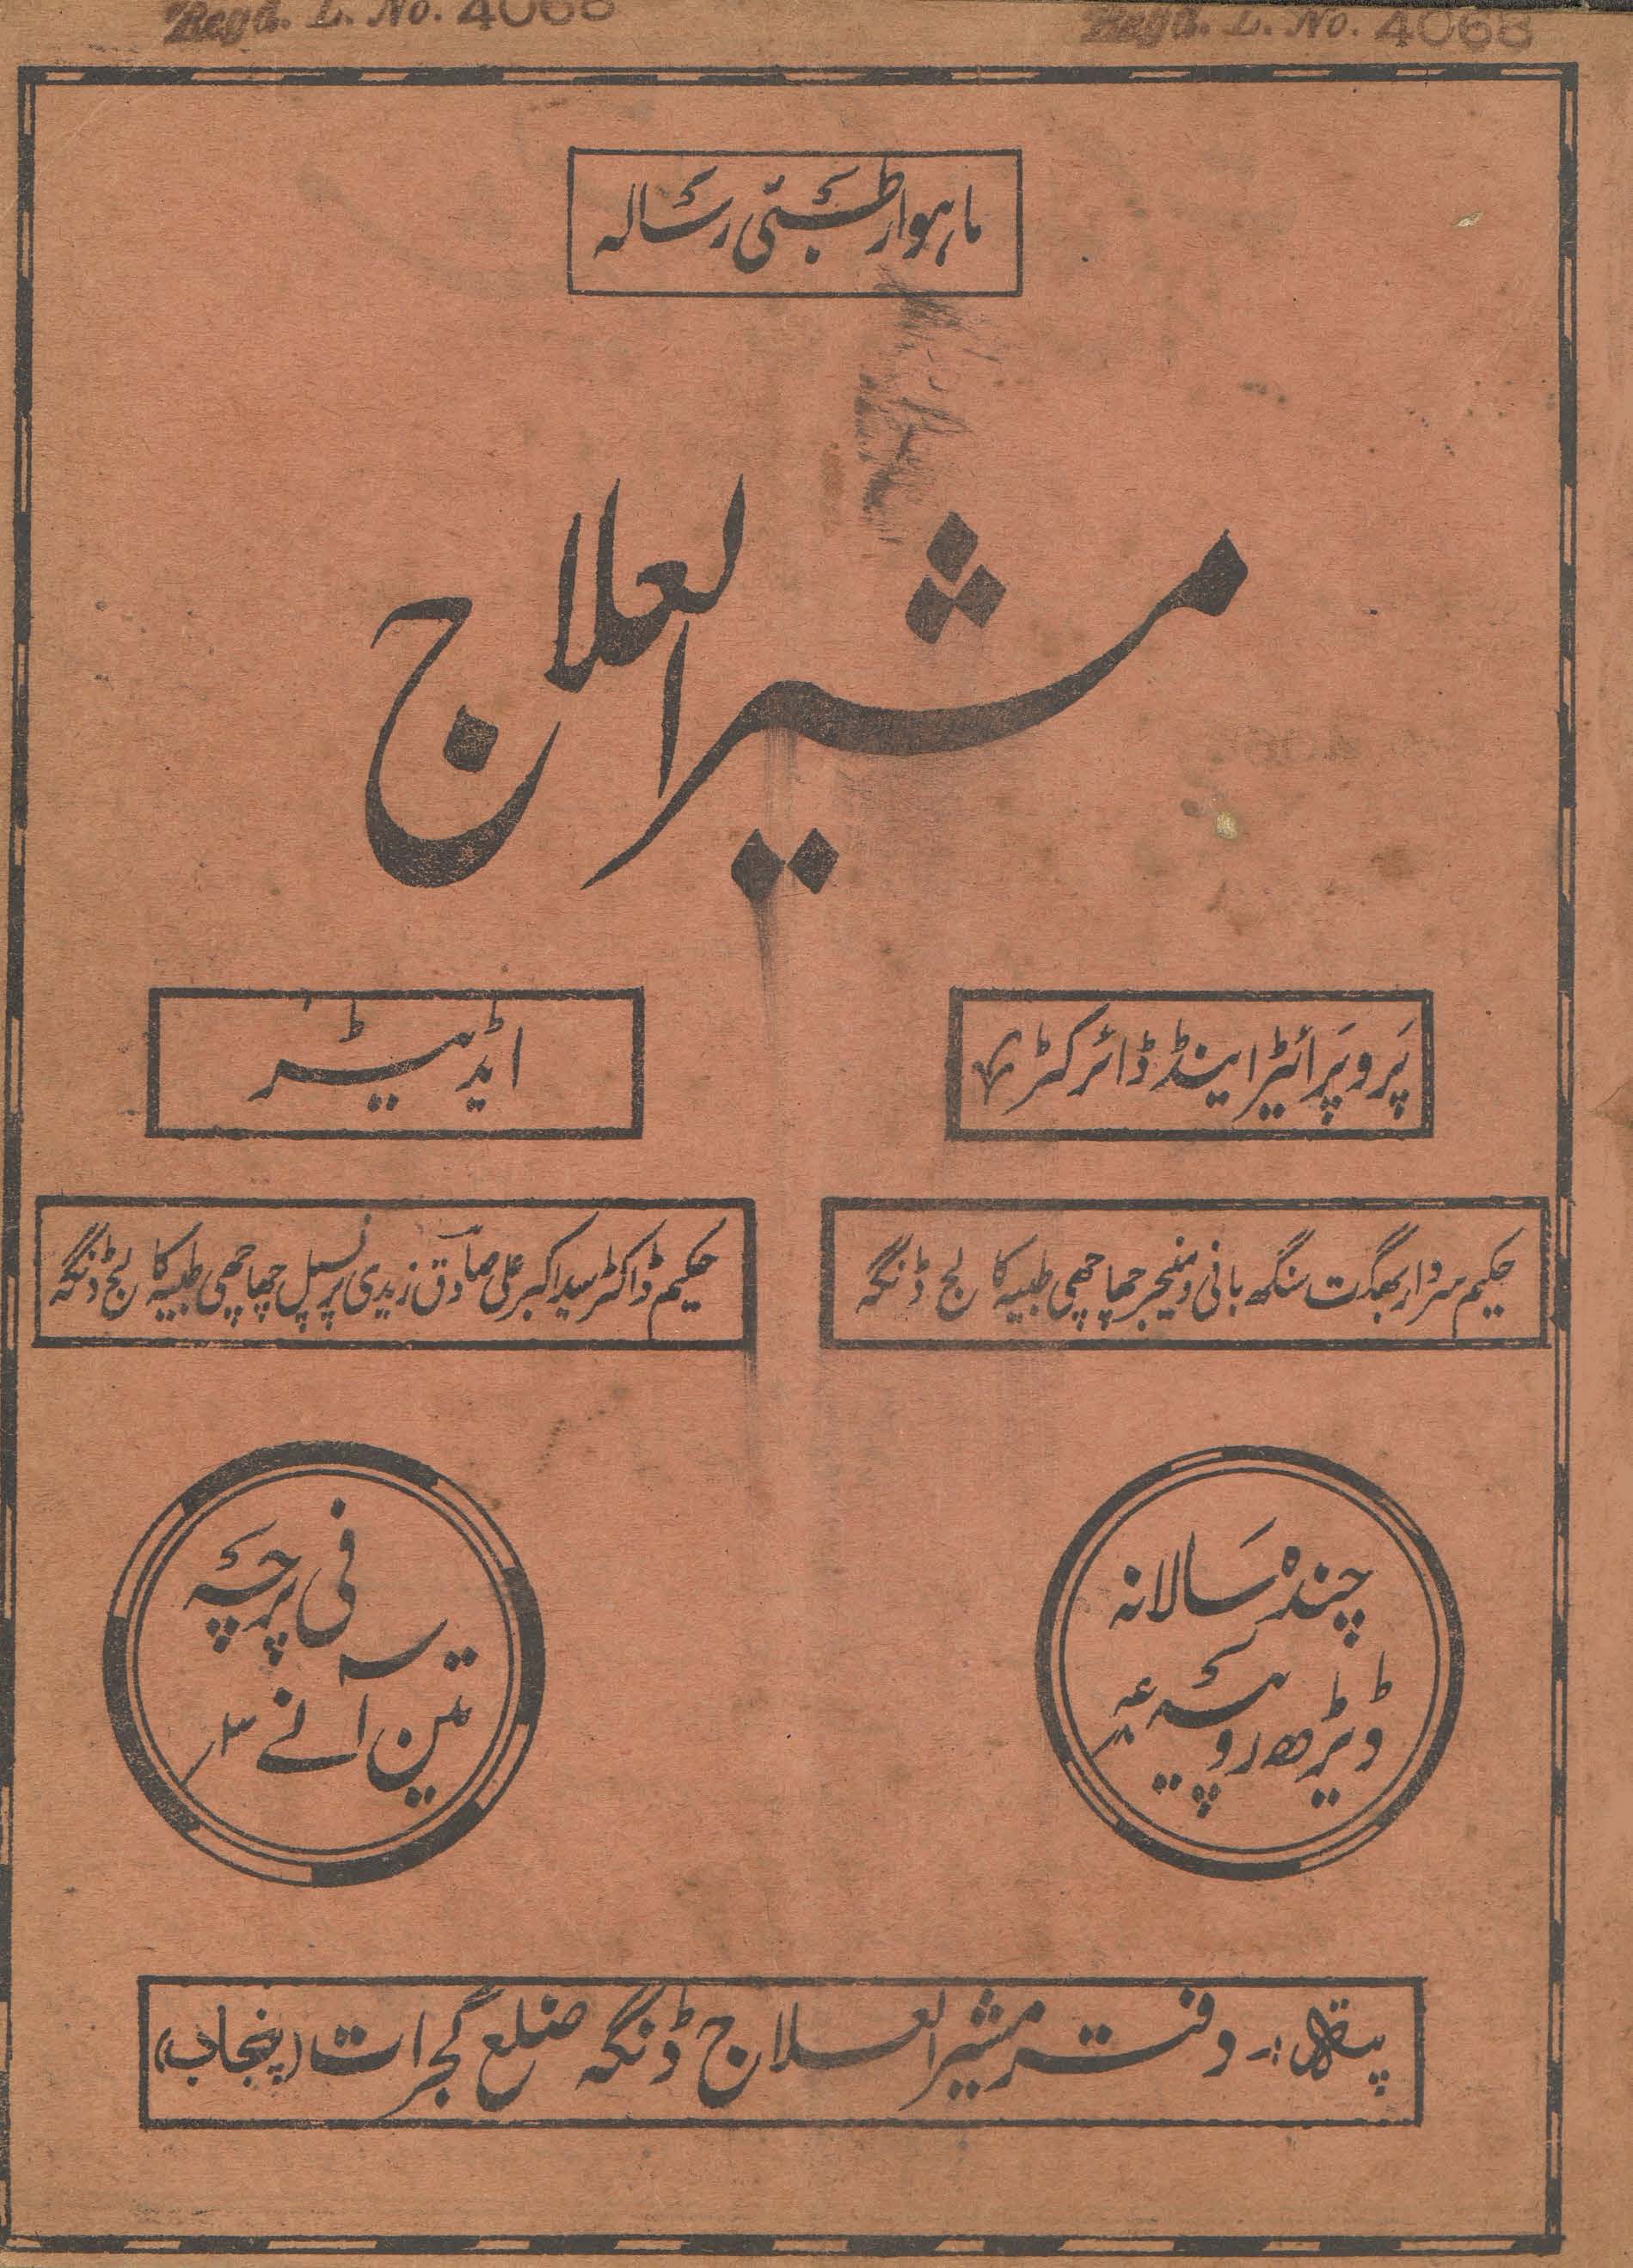 Regd. L. No. 4068
Regd. L. No. 4068
ماہوار طبّی رسالہ
مشیر العلاج
پروپرائٹر اینڈ ڈائرکٹر
ایڈیٹر
حکیم سردار بھگت سنگھ بانی و منیجر چھاچھی طبیہ کالج ڈنگہ
حکیم ڈاکٹر سید اکبر علی صادق زیدی پرنسپل چھاچھی طبیہ کالج ڈنگہ
چندہ سالانہ
ڈیڑھ روپیہ
فی پرچہ
تین آنے ۳؍
پتہ:۔ دفتر مشیر العلاج ڈنگہ ضلع گجرات (پنجاب)